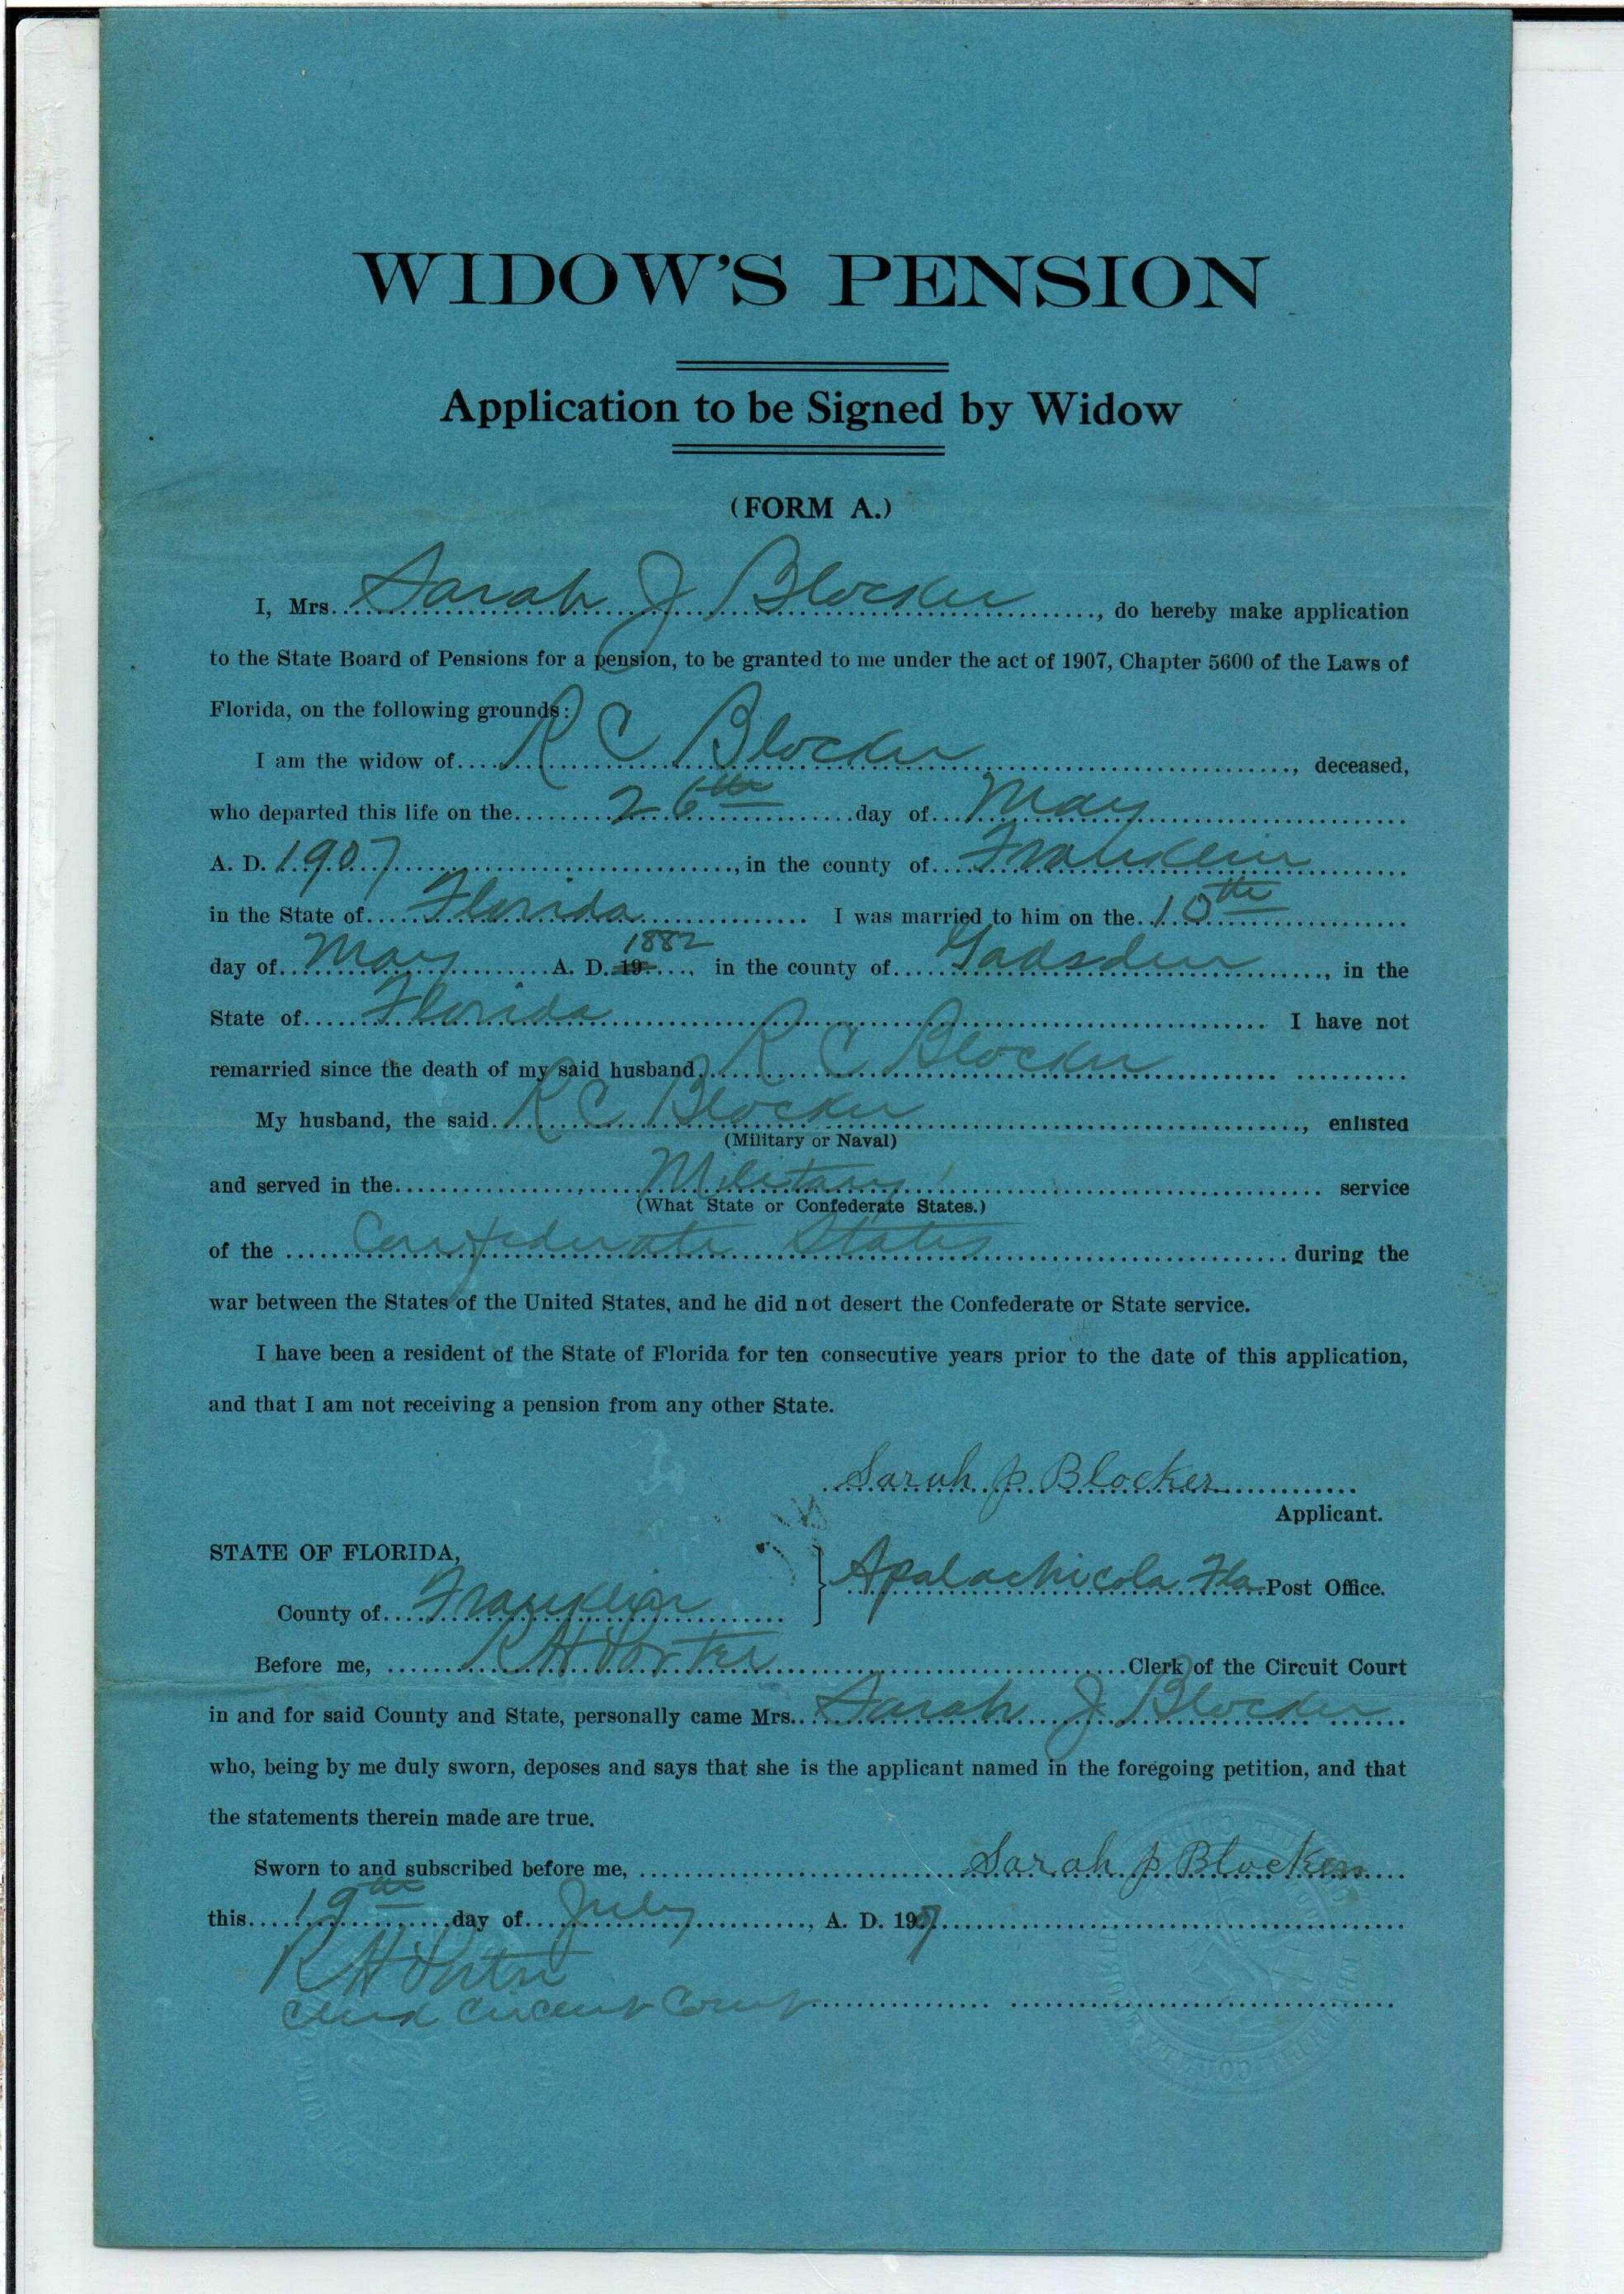 WIDOW'S PENSION
Application to be Signed by Widow
(FORM A.)
I, Mrs. Sarah J Blocker, do hereby make application
to the State Board of Pensions for a pension, to be granted to me under the act of 1907, Chapter 5600 of the Laws of
Florida, on the following grounds:
I am the widow of R C Blocker, deceased,
who departed this life on the 26th day of May
A. D. 1907, in the county of Franklin
in the State of Florida I was married to him on the 10th
day of May A. D. 19 1882, in the county of Gadsden, in the
State of Florida I have not
remarried since the death of my said husband, R C Blocker
My husband, the said R C Blocker, enlisted
(Military or Naval)
and served in the Military service
(What State or Confederate States.)
of the Confederate States during the
war between the States of the United States, and he did not desert the Confederate or State service.
I have been a resident of the State of Florida for ten consecutive years prior to the date of this application,
and that I am not receiving a pension from any other State.
Sarah J Blocker
Applicant.
STATE OF FLORIDA,
Apalachicola Fla Post Office.
County of Franklin
Before me, R H Porter Clerk of the Circuit Court
in and for said County and State, personally came Mrs. Sarah J Blocker
who, being by me duly sworn, deposes and says that she is the applicant named in the foregoing petition, and that
the statements therein made are true.
Sworn to and subscribed before me, Sarah J Blocker
this 19th day of July, A. D. 1907
R H Porter
Clerk Circuit Court